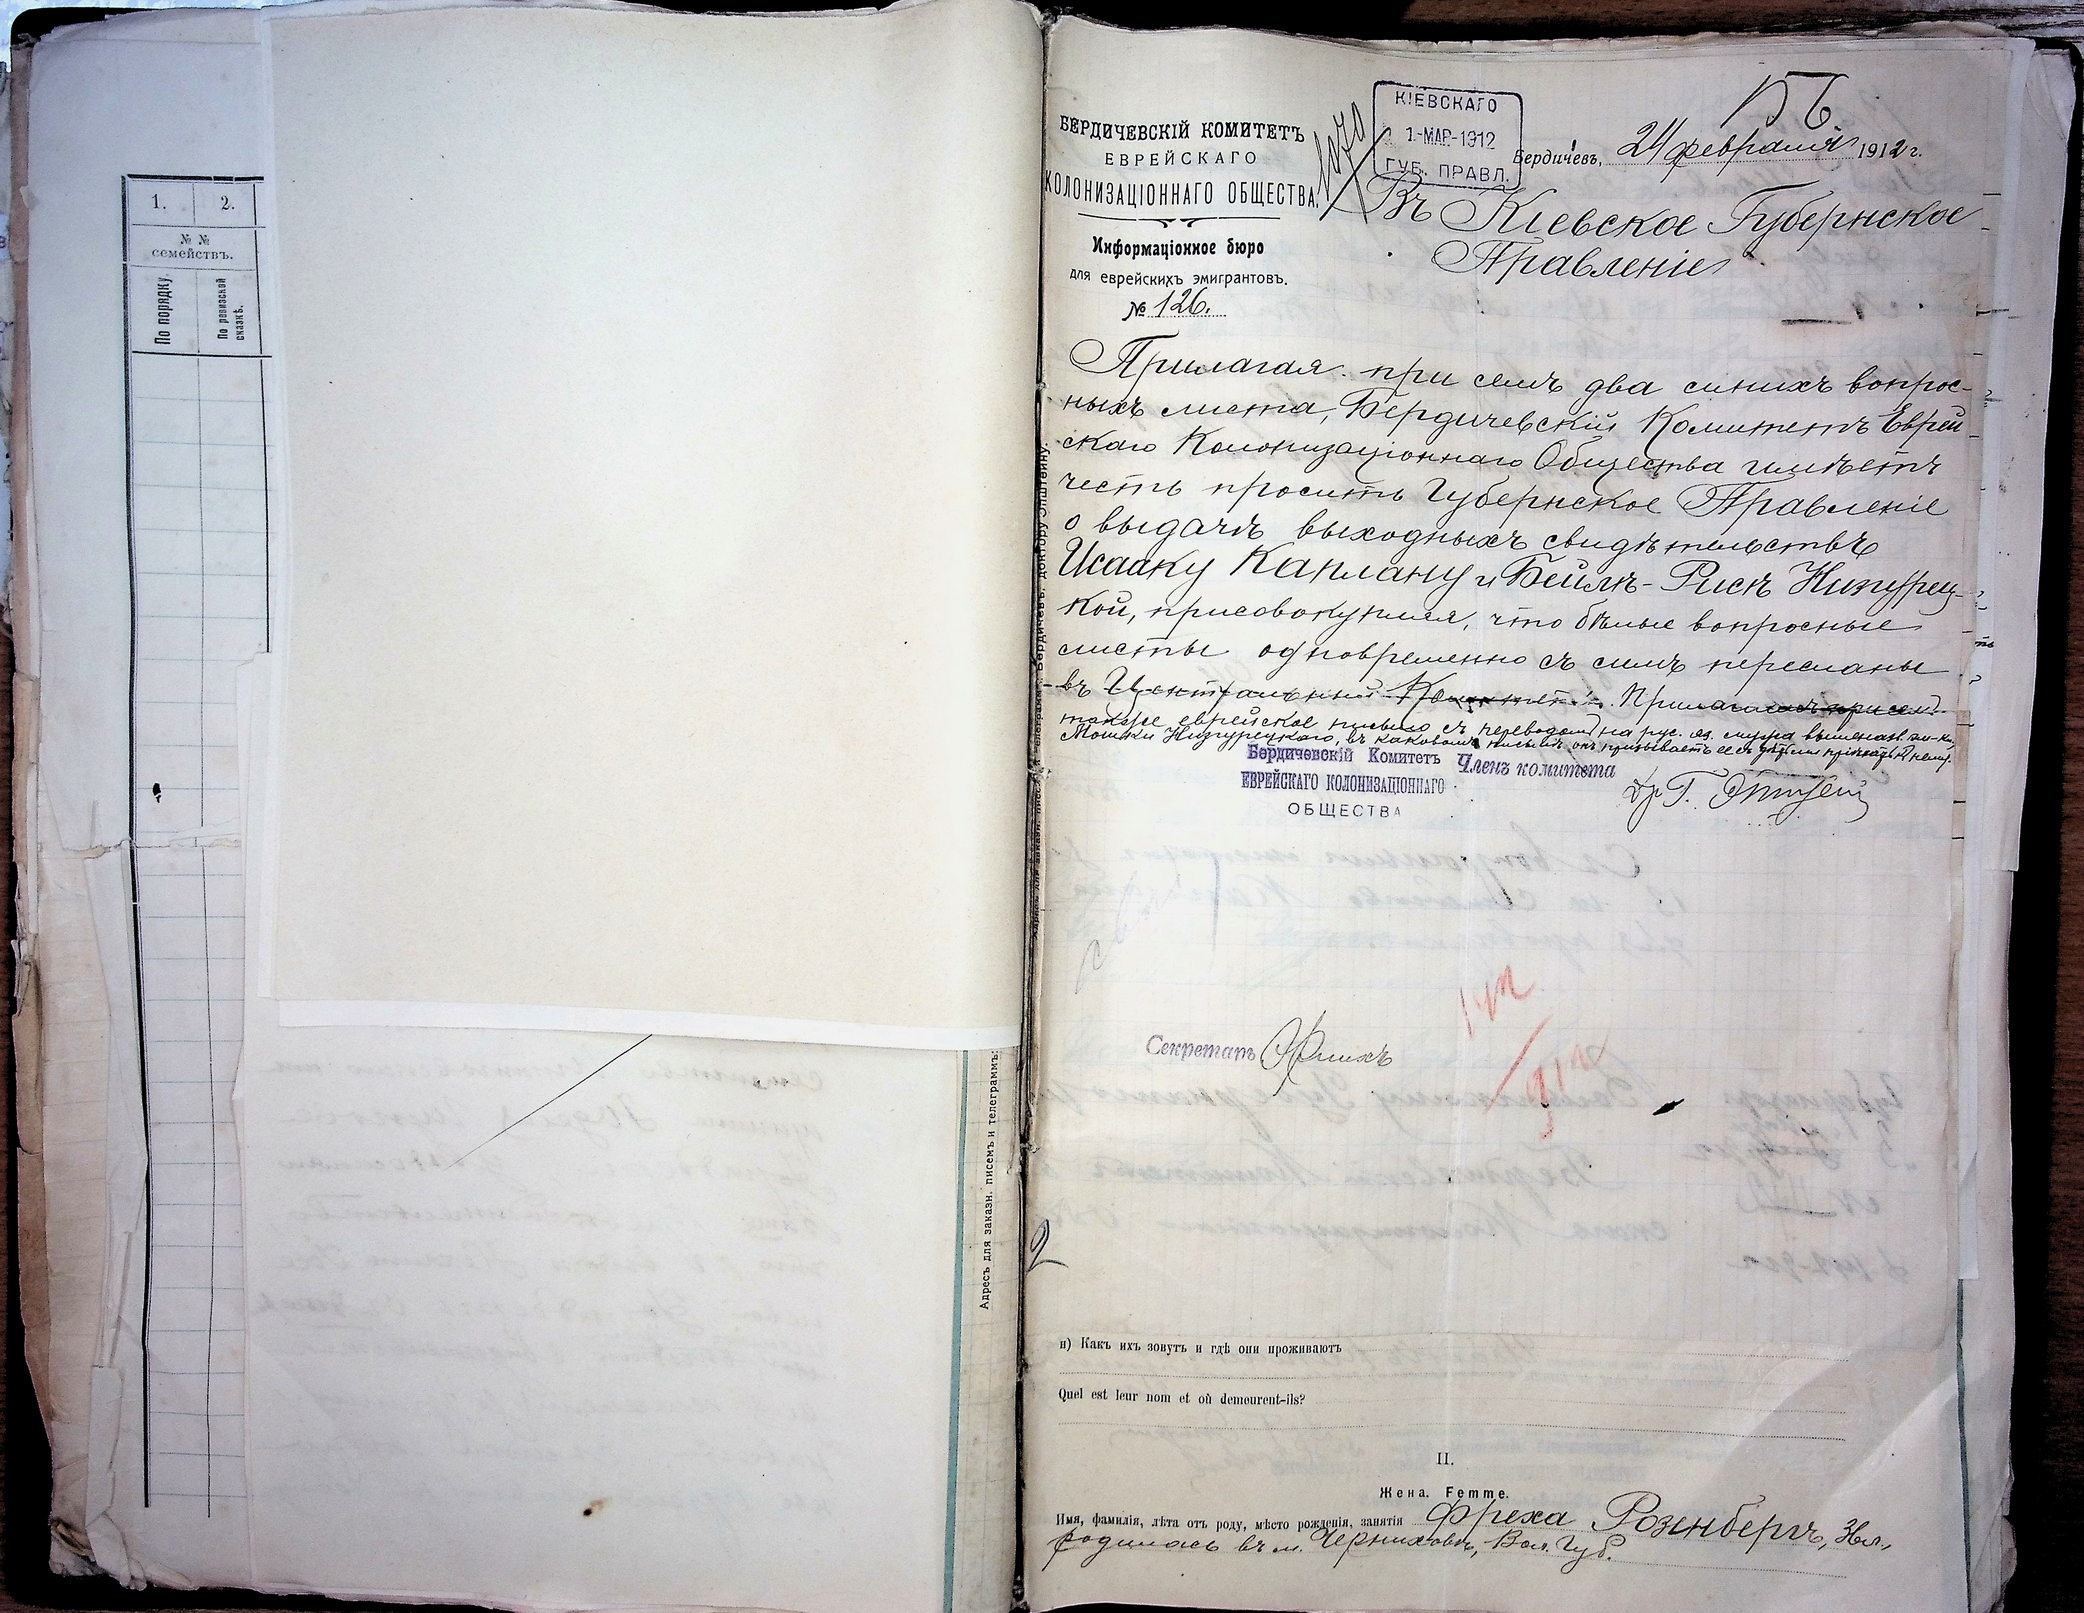 1. 2.
№ №
семействъ.
По порядку.
По ревизской
сказкѣ.
БЕРДИЧЕВСКІЙ КОМИТЕТЪ
ЕВРЕЙСКАГО
КОЛОНИЗАЦІОННАГО ОБЩЕСТВА.
Информаціонное бюро
для еврейскихъ эмигрантовъ.
№ 126.
КІЕВСКАГО
1-МАР-1912
ГУБ. ПРАВЛ.
Бердичевъ, 24 февраля 1912 г.
Въ Кіевское Губернское
Правленіе
Прилагая при семъ два синихъ вопрос-
ныхъ листа, Бердичевскій Комитетъ Еврей-
скаго Колонизаціоннаго Общества имѣетъ
честь просить Губернское Правленіе
о выдачѣ выходныхъ свидѣтельствъ
Исааку Каплану и Бейлѣ-Рисѣ Низгурец-
кой, присовокупляя, что бѣлые вопросные
листы одновременно съ симъ пересланы
въ Центральный Комитетъ. Прилагается при семъ
также еврейское письмо съ переводомъ на рус. яз. мужа
Мошки Низгурецкаго, въ каковомъ письмѣ онъ призываетъ ее съ дѣтьми пріѣхать къ нему.
Бердичевскій Комитетъ
ЕВРЕЙСКАГО КОЛОНИЗАЦІОННАГО
ОБЩЕСТВА
Членъ комитета
Др Г. Эпштейн
Секретарь
2
Адресъ для заказн. писемъ и телеграммъ: Бердичевъ, доктору Эпштейну.
н) Какъ ихъ зовутъ и гдѣ они проживаютъ
Quel est leur nom et où demeurent-ils?
II.
Жена. Femme.
Имя, фамилія, лѣта отъ роду, мѣсто рожденія, занятія Фреха Розенбергъ,
родилась въ м. Черниховѣ, Вол. Губ.